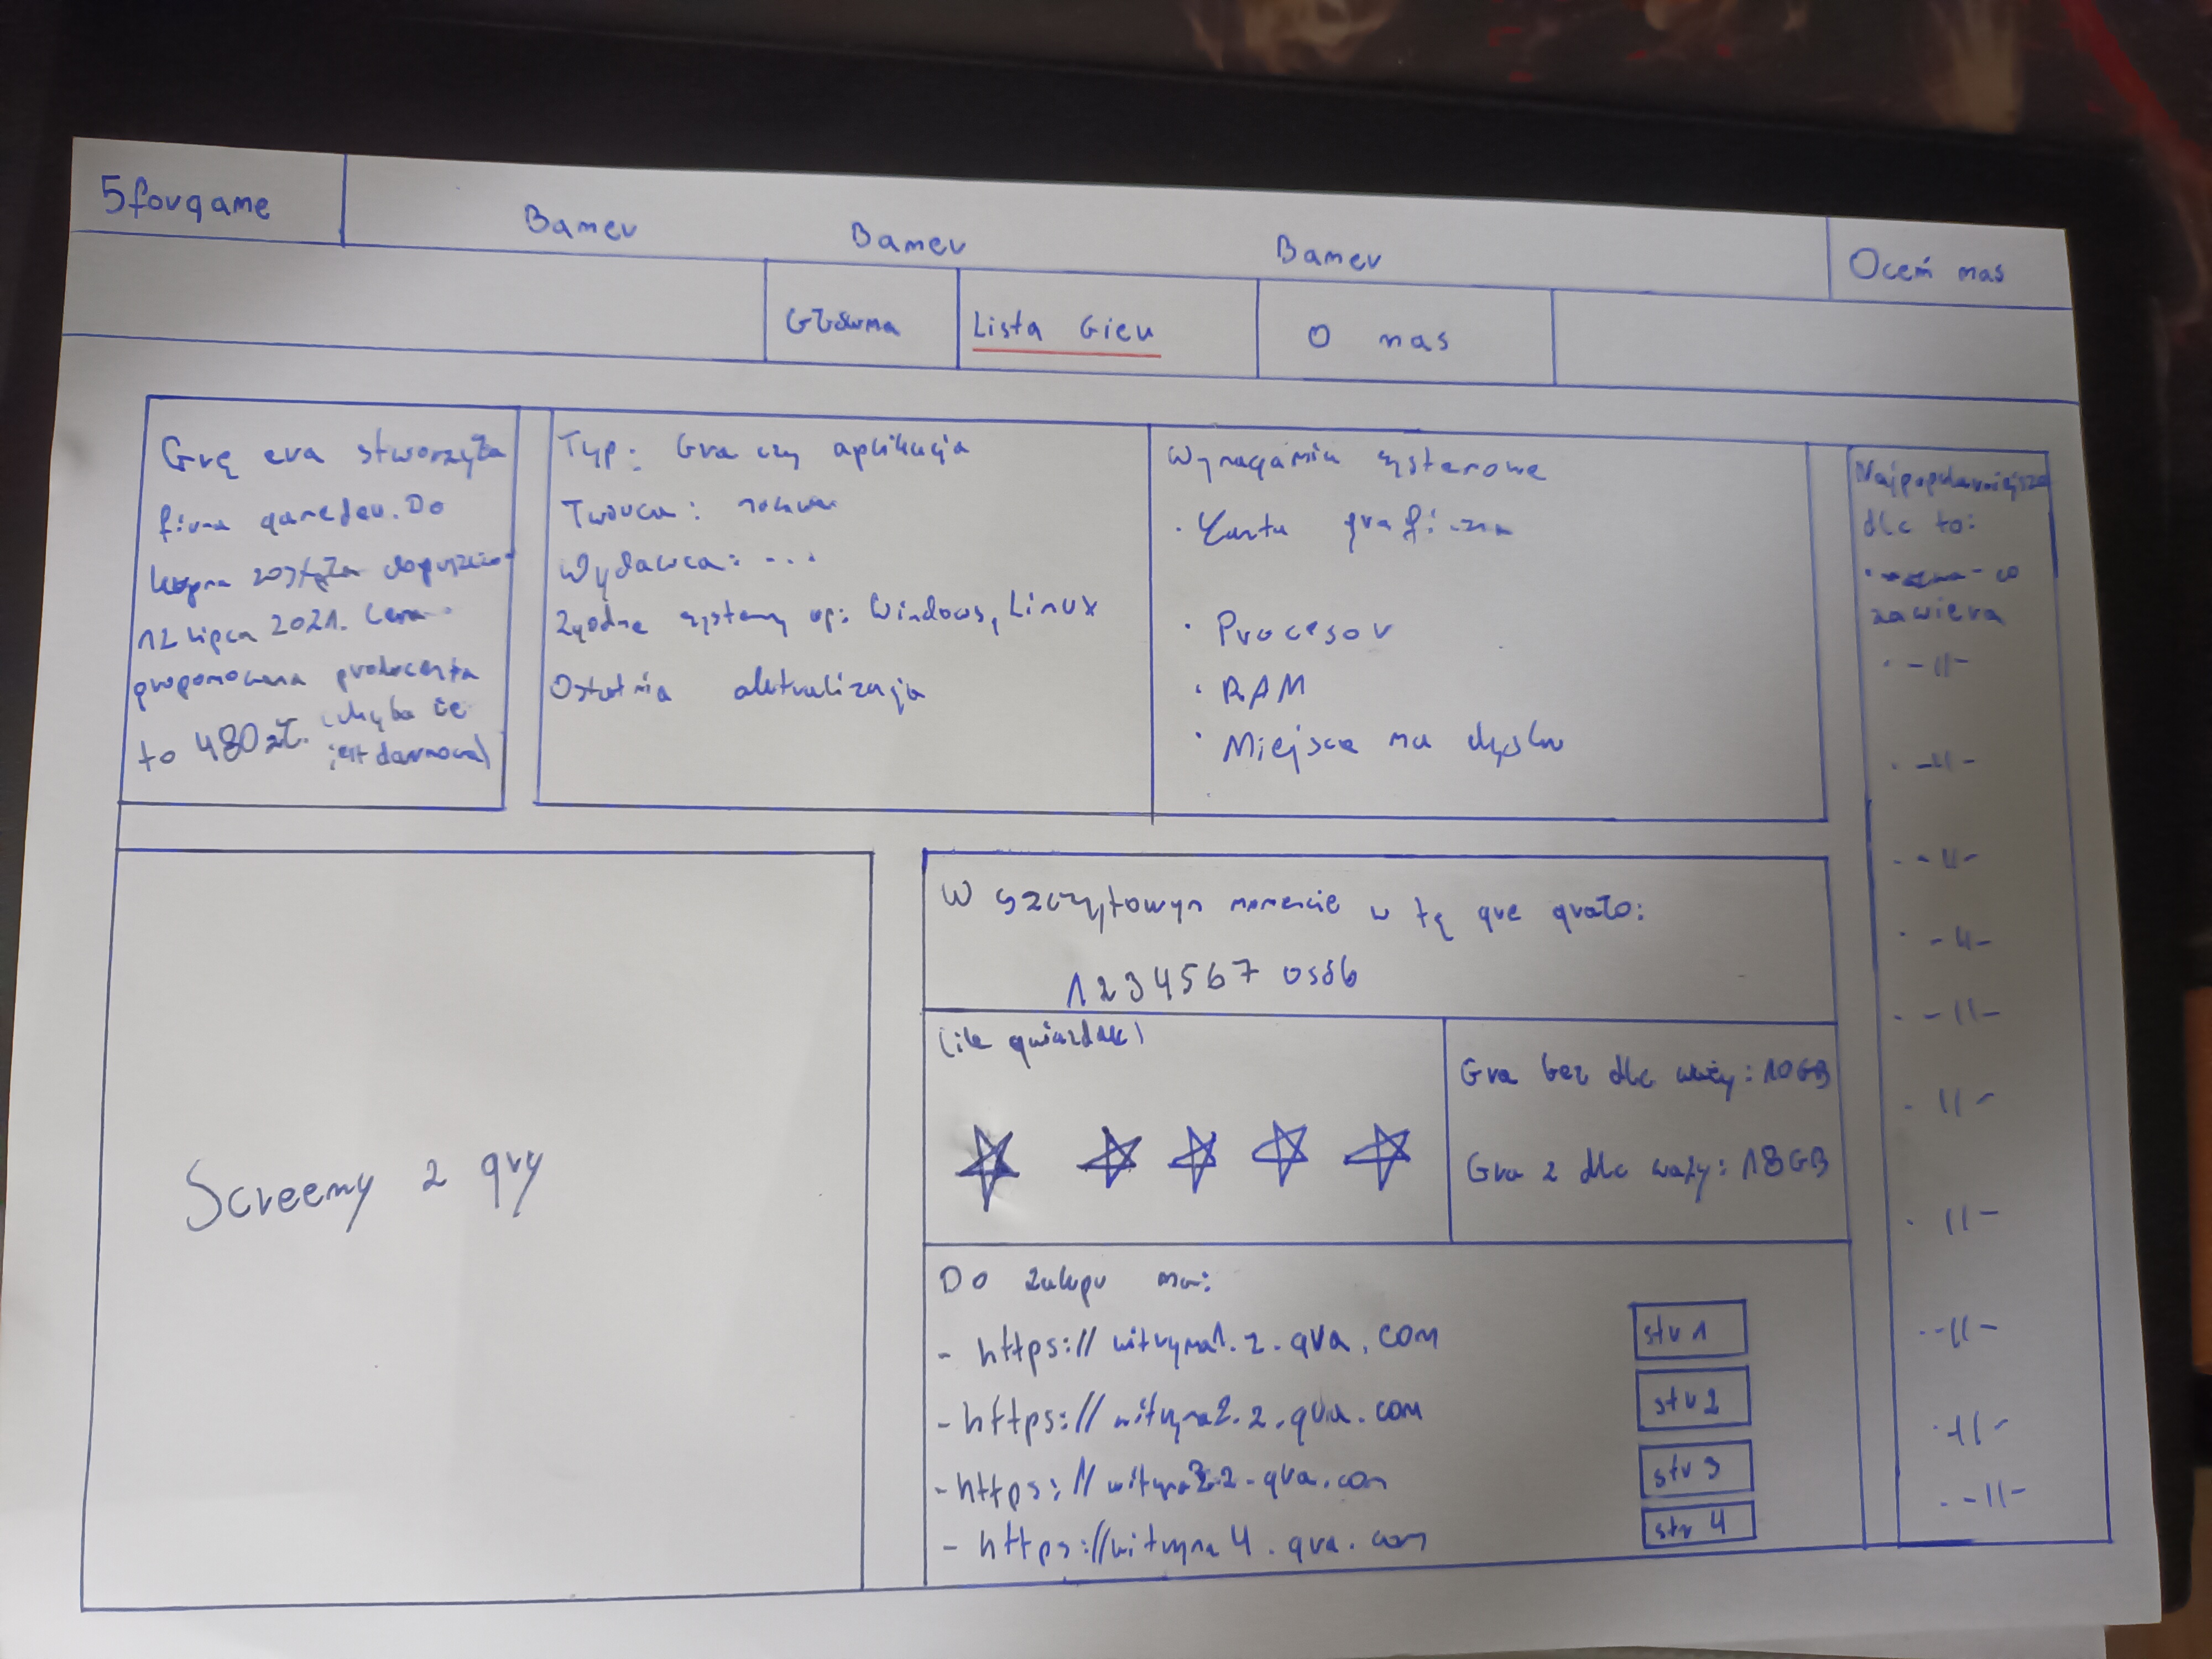 5forgame
Baner
Baner
Baner
Oceń nas
Główna
Lista Gier
O nas
Grę era stworzyła
firma gamedev. Do
kupna została dopuszczo-
12 lipca 2021. Cena
proponowana producenta
to 480 zł. (chyba że
jest darmowa)
Typ: Gra czy aplikacja
Twórca: nazwa
Wydawca: ...
Zgodne systemy op: Windows, Linux
Ostatnia aktualizacja
Wymagania systemowe
· Karta graficzna
· Procesor
· RAM
· Miejsce na dysku
Najpopularniejsze
dlc to:
· nazwa - co
zawiera
· -||-
· -||-
· -||-
· -||-
· -||-
· ||-
· ||-
· -||-
· -||-
· -||-
Screeny z gry
W szczytowym momencie w tę grę grało:
1234567 osób
(ile gwiazdek)
Gra bez dlc waży: 10GB
Gra z dlc waży: 18GB
Do zakupu na:
- https://witryna1.z.gra.com
str 1
- https://witryna2.z.gra.com
str 2
- https://witryna3.z-gra.com
str 3
- https://witryna4.gra.com
str 4